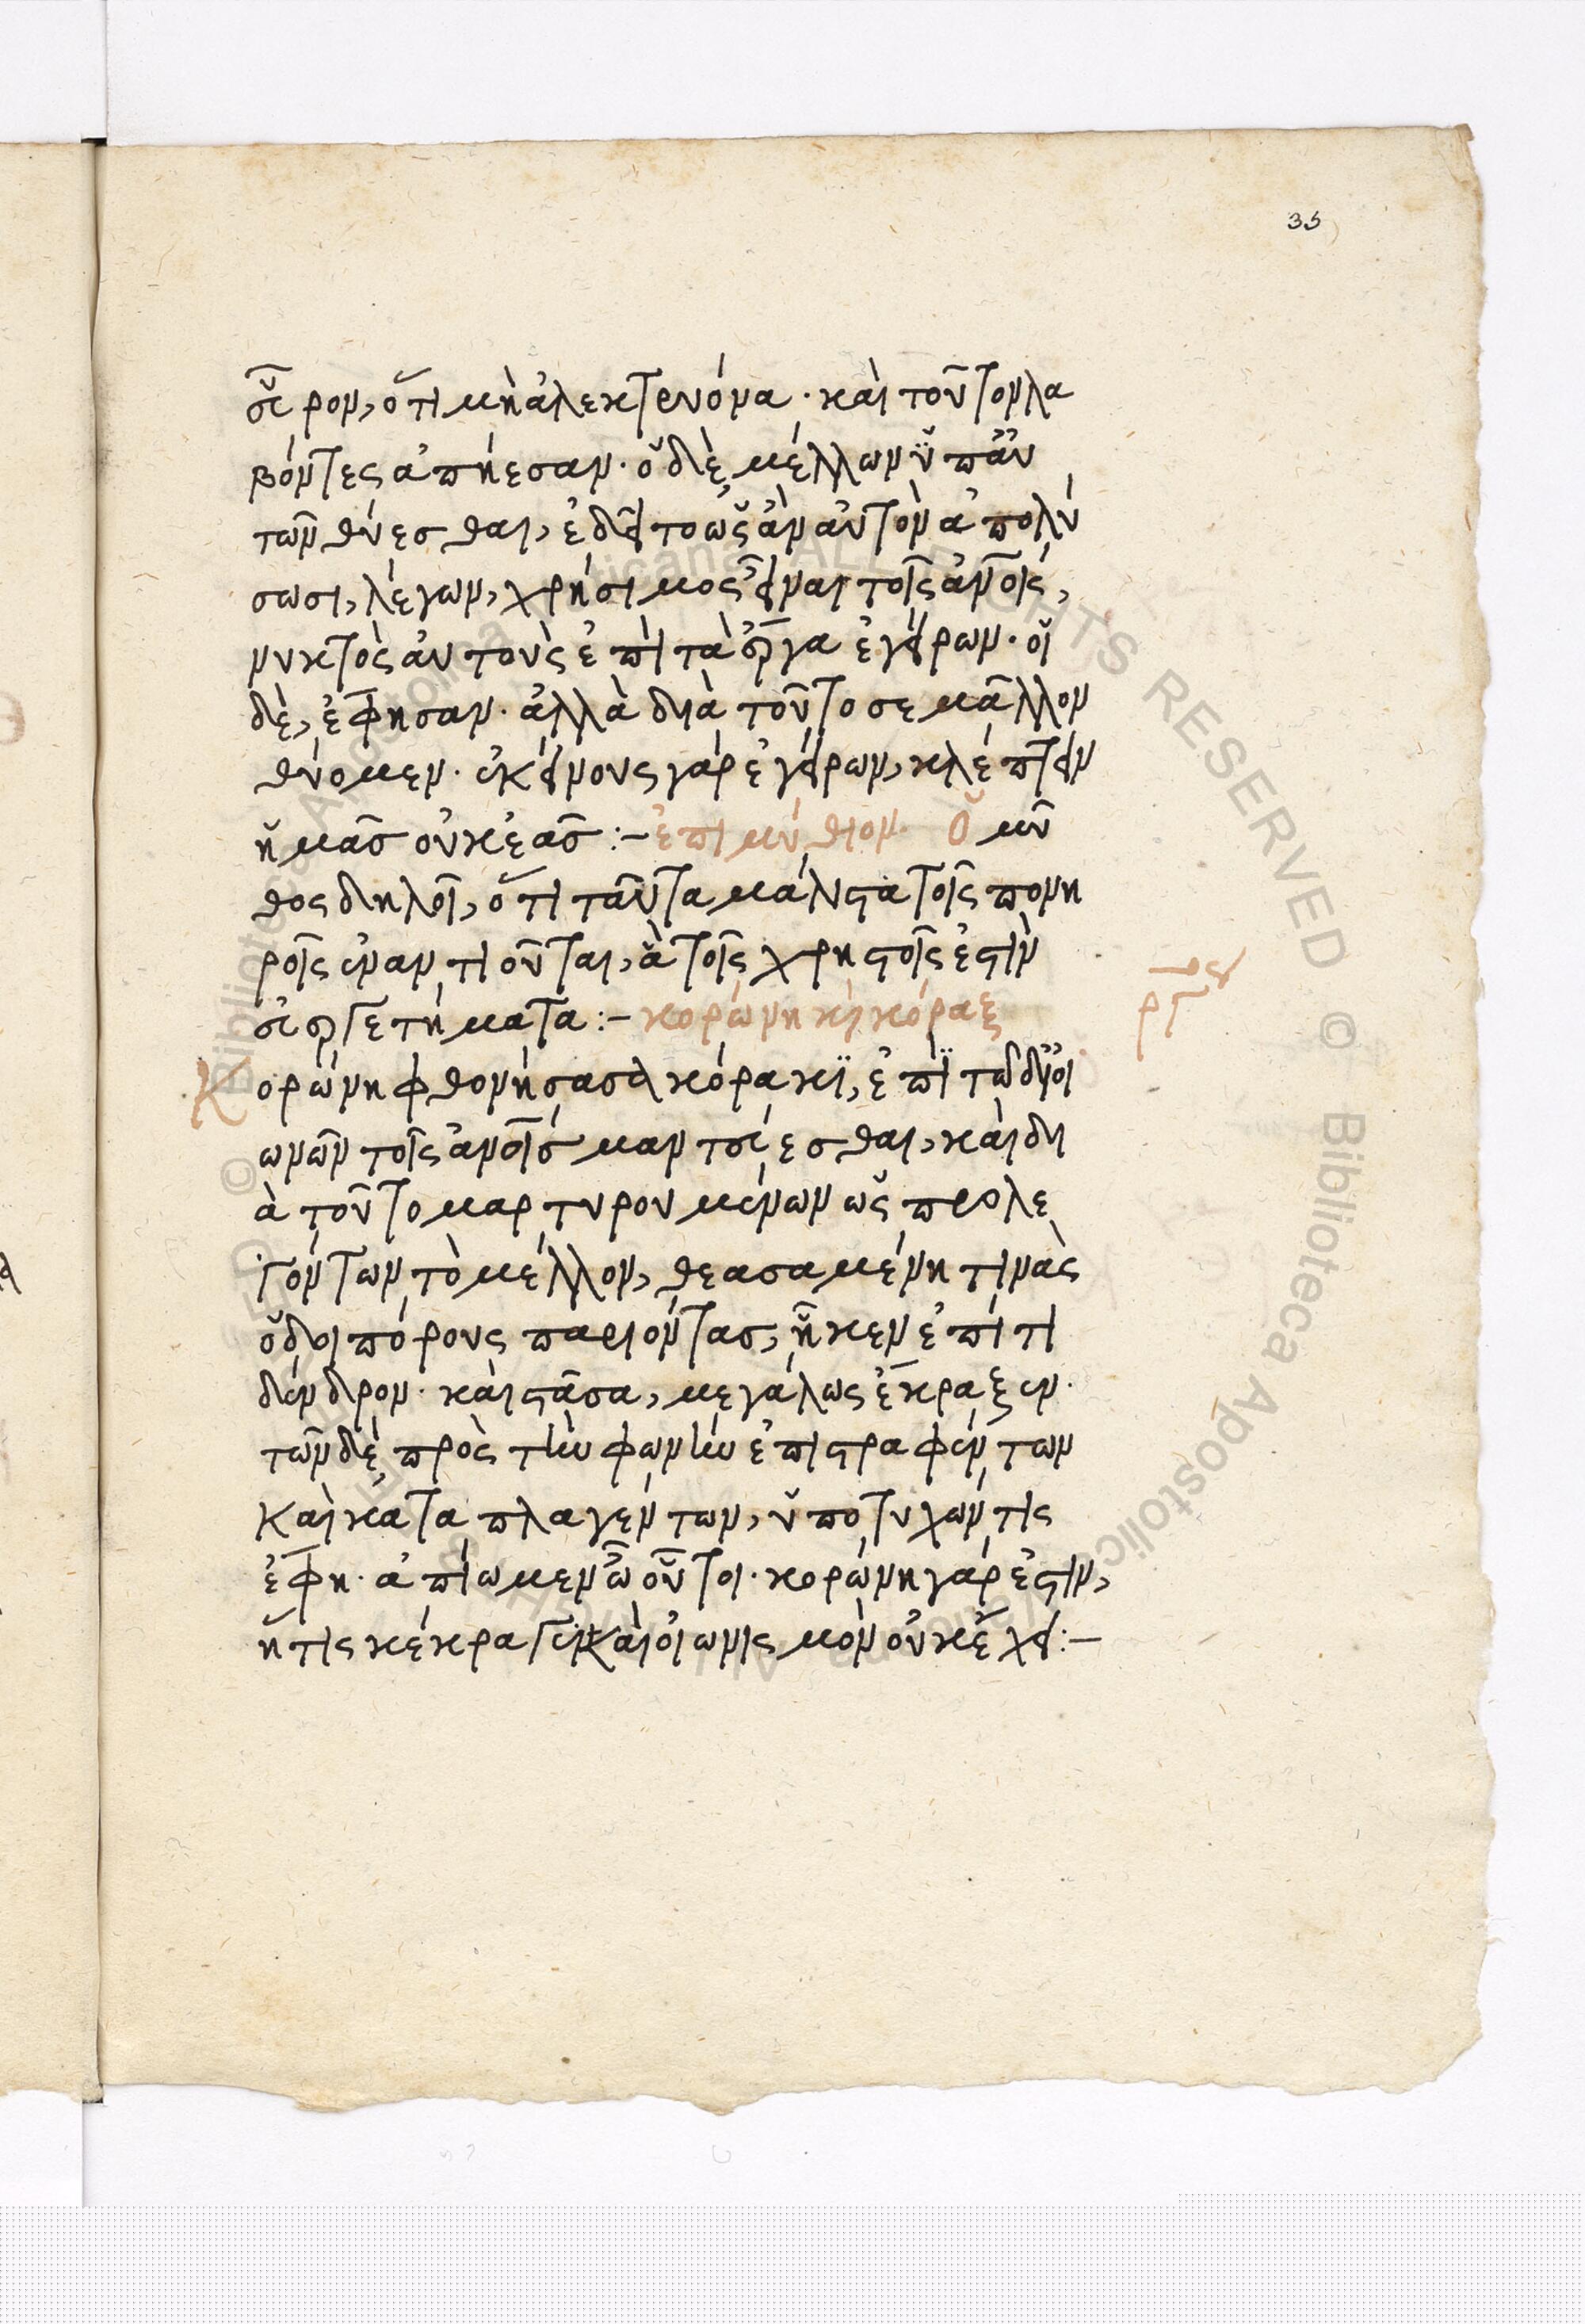 35
εὗρον, ὅτι μὴ ἀλεκτρυόνα· καὶ τοῦτον λα
βόντες ἀπήεσαν· ὁ δὲ μέλλων ὑπ' αὐ
τῶν θύεσθαι, ἐδεῖτο ὡς ἂν αὐτὸν ἀπολύ
σωσι, λέγων, χρήσιμος εἶναι τοῖς ἀνοις,
νυκτὸς αὐτοὺς ἐπὶ τὰ ἔργα ἐγείρων· οἱ
δὲ, ἔφησαν· ἀλλὰ διὰ τοῦτο σε μᾶλλον
θύομεν· ἐκείνους γὰρ ἐγείρων, κλέπτειν
ἡμᾶς οὐκ ἐᾶς :- ἐπιμύθιον· Ὁ μῦ
θος δηλοῖ, ὅτι ταῦτα μάλιστα τοῖς πονη
ροῖς ἐναντιοῦνται, ἃ τοῖς χρηστοῖς ἐστὶν
εὐεργετήματα :- κορώνη κὶ κόραξ
Κορώνη φθονήσασα κόρακϊ, ἐπὶ τῶ δι' οἰ
ωνῶν τοῖς ἀνοις μαντεύεσθαι, καὶ δι
ὰ τοῦτο μαρτυρουμένων ὡς προλε
γόντων τὸ μέλλον, θεασαμένη τινὰς
ὁδοιπόρους παριόντας, ἧκεν ἐπί τι
δένδρον· καὶ στᾶσα, μεγάλως ἔκραξεν·
τῶν δὲ πρὸς τὴν φωνὴν ἐπιστραφέντων
καὶ καταπλαγέντων, ὑποτυχών τις
ἔφη· ἀπίωμεν ὦ οὗτοι· κορώνη γάρ ἐστιν,
ἥτις κέκραγεν καὶ οἰωνισμὸν οὐκ ἔχει :-